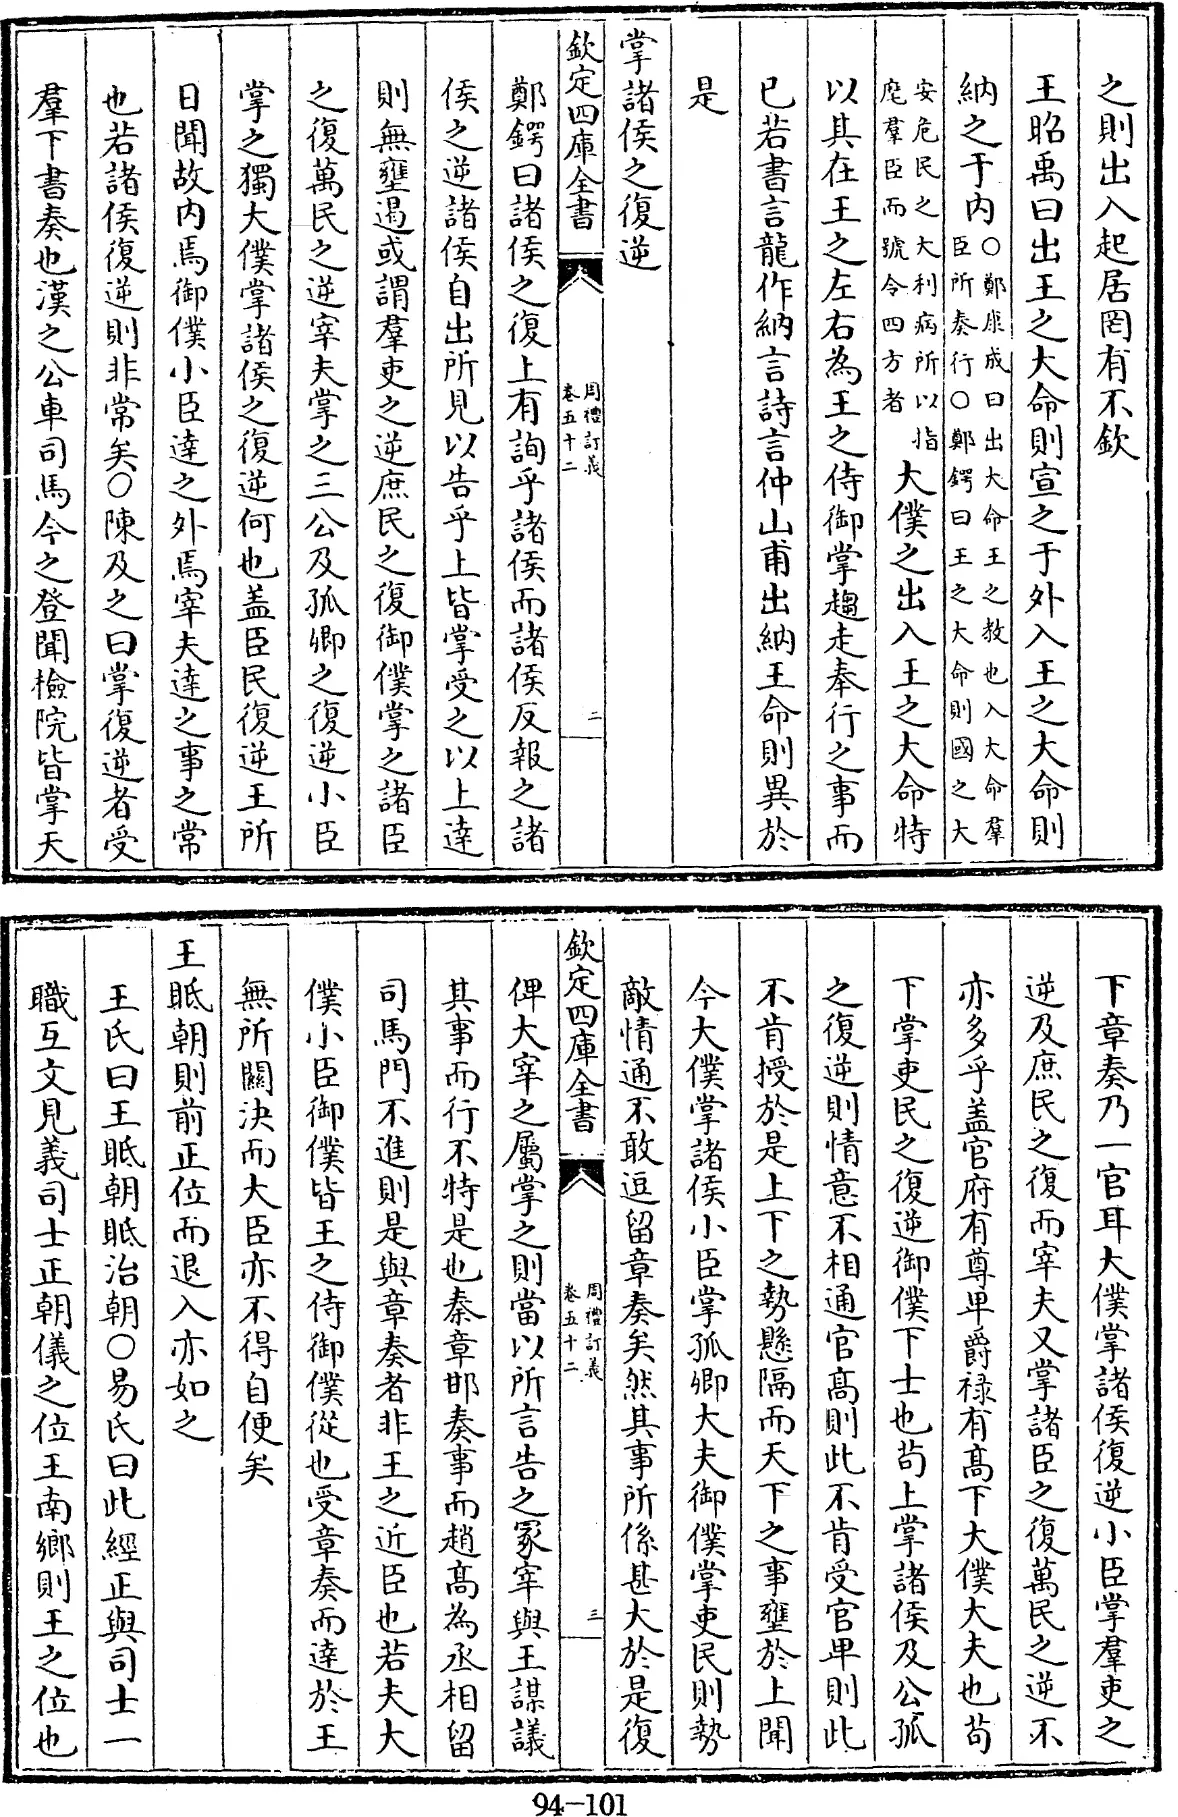 之則出入起居罔有不欽
王昭禹曰出王之大命則宣之于外入王之大命則
納之于内
○鄭康成曰出大命王之教也入大命羣
臣所奏行○鄭鍔曰王之大命則國之大
安危民之大利病所以指
麾羣臣而號令四方者
大僕之出入王之大命特
以其在王之左右為王之侍御掌趨走奉行之事而
已若書言龍作納言詩言仲山甫出納王命則異於
是
掌諸侯之復逆
欽定四庫全書
周禮訂義
卷五十二
二
鄭鍔曰諸侯之復上有詢乎諸侯而諸侯反報之諸
侯之逆諸侯自出所見以告乎上皆掌受之以上達
則無壅遏或謂羣吏之逆庶民之復御僕掌之諸臣
之復萬民之逆宰夫掌之三公及孤卿之復逆小臣
掌之獨大僕掌諸侯之復逆何也盖臣民復逆王所
日聞故内焉御僕小臣達之外焉宰夫達之事之常
也若諸侯復逆則非常矣○陳及之曰掌復逆者受
羣下書奏也漢之公車司馬今之登聞檢院皆掌天
下章奏乃一官耳大僕掌諸侯復逆小臣掌羣吏之
逆及庶民之復而宰夫又掌諸臣之復萬民之逆不
亦多乎盖官府有尊卑爵禄有髙下大僕大夫也茍
下掌吏民之復逆御僕下士也茍上掌諸侯及公孤
之復逆則情意不相通官髙則此不肯受官卑則此
不肯授於是上下之勢懸隔而天下之事壅於上聞
今大僕掌諸侯小臣掌孤卿大夫御僕掌吏民則勢
敵情通不敢逗留章奏矣然其事所係甚大於是復
欽定四庫全書
周禮訂義
卷五十二
三
俾大宰之屬掌之則當以所言告之冢宰與王謀議
其事而行不特是也秦章邯奏事而趙髙為丞相留
司馬門不進則是與章奏者非王之近臣也若夫大
僕小臣御僕皆王之侍御僕從也受章奏而達於王
無所關決而大臣亦不得自便矣
王眡朝則前正位而退入亦如之
王氏曰王眡朝眡治朝○易氏曰此經正與司士一
職互文見義司士正朝儀之位王南鄉則王之位也
94-101